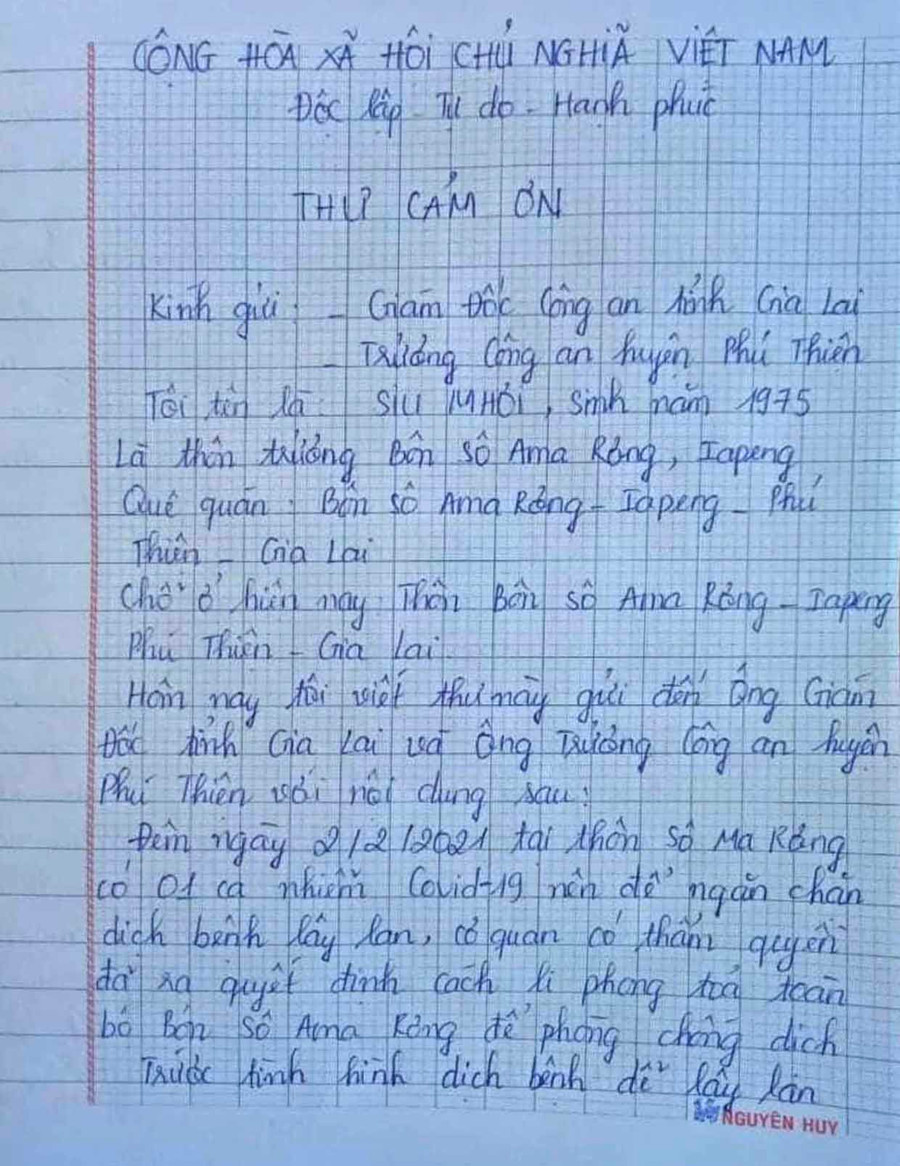 CỘNG HÒA XÃ HÔI CHỦ NGHIÃ VIỆT NAM
Độc lập - Tự do - Hạnh phúc
THƯ CẢM ƠN
Kính gửi: - Giám Đốc Công an tỉnh Gia Lai
- Trưởng Công an huyện Phú Thiện
Tôi tên là: SIU MHỎI, sinh năm 1975
Là thôn trưởng Bôn sô Ama Rông, Iapeng
Quê quán: Bôn sô Ama Rông - Iapeng - Phú
Thiện - Gia Lai
Chỗ ở hiện nay: Thôn Bôn sô Ama Rông - Iapeng
Phú Thiện - Gia Lai.
Hôm nay tôi viết thư này gửi đến Ông Giám
Đốc tỉnh Gia Lai và Ông Trưởng Công an huyện
Phú Thiện với nội dung sau:
Đêm ngày 2/2/2021 tại thôn sô Ma Rông
có 01 ca nhiễm Covid-19 nên để ngăn chăn
dịch bệnh lây lan, cơ quan có thẩm quyền
đã ra quyết định cách li phong toả toàn
bộ Bôn Sô Ama Rông để phòng chống dịch
Trước tình hình dịch bệnh dễ lây lan
NGUYÊN HUY